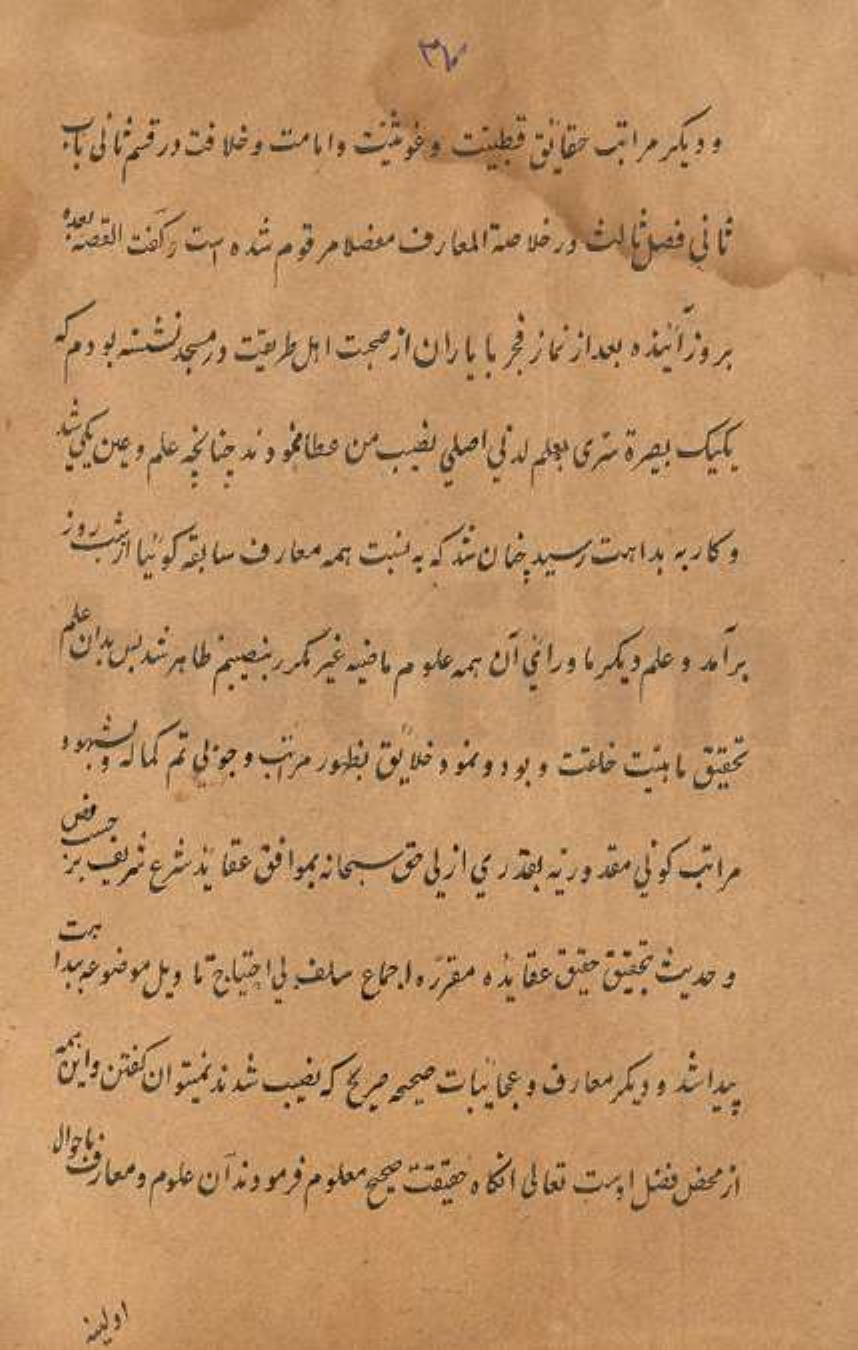 و دیکر مراتب حقائق قطبیت و غوثیت و امامت و خلافت در قسم ثانی باب
ثانی فصل ثالث در خلاصة المعارف مفصلا مرقوم شده است القصه بعده
بروز آئنده بعد از نماز فجر با یاران از صحبت اهل طریقت در مسجد نشسته بودم که
یکیک بصرة سری بعلم لدنی اصلی نصیب من عطا نمودند چنانچه علم و عین یکی شد
و کار به بداهت رسید چنان شد که به نسبت همه معارف سابقه کوئیا از شب روز
برآمد و علم دیکر ماورائی آن همه علوم ماضیه غیر مکرر بنصیبم ظاهر شد پس بدان علم
تحقیق ماهیت خلقت و بود و نمود خلایق بظهور مراتب وجوبی تم کماله و بشهود
مراتب کونی مقدوریه بقدری ازلی حق سبحانه بموافق عقائد شرع شریف
و حدیث بتحقیق عقایده مقرره اجماع سلف بی احتیاج تاویل موضوعه
پیدا شد و دیکر معارف و عجائبات صحیحه صریح که نصیب شدند نمیتوان کفتن و این همه
از محض فضل اوست تعالی انکاه حقیقت صحیح معلوم فرمودند آن علوم و معارف باحوال
اولیه